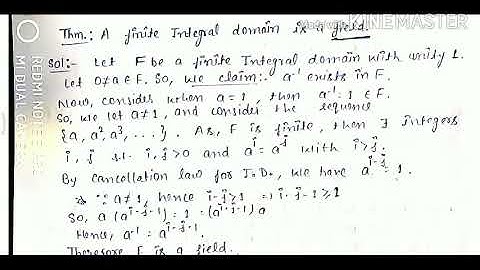 Made with KINEMASTER
Thm.: A finite Integral domain is a field.
Sol:- Let F be a finite Integral domain with unity 1.
Let 0≠a∈F. So, we claim: a⁻¹ exists in F.
Now, consider when a=1, then a⁻¹=1 ∈ F.
So, we let a≠1, and consider the sequence
{a, a², a³, ...}. As, F is finite, then ∃ integers
i, j s.t. i, j>0 and aⁱ=aʲ with i>j.
By cancellation law for I.D., we have aⁱ⁻ʲ=1.
∵ a≠1, hence i-j>1 ⇒ i-j-1≥1
So, a(aⁱ⁻ʲ⁻¹)=1=(aⁱ⁻ʲ⁻¹)a
Hence, a⁻¹=aⁱ⁻ʲ⁻¹
Therefore F is a field.
REDMI NOTE
MI DUAL CAMERA